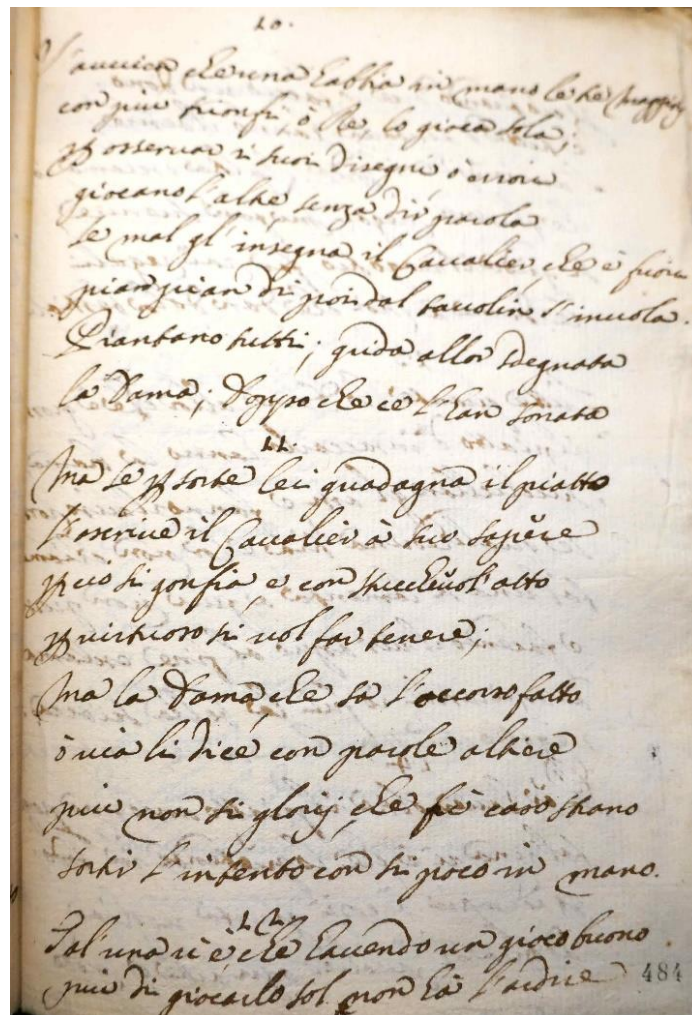 10.
S'auuien che una habbia in mano le tre Mappior
con piu trionfi ò Re, lo gioca sola;
ꝑ osseruar i suoi disegni, ò errori
giocano l'altre senza dir parola
se mal gl'insegna il Caualier, che è fuori
pian pian di poi dal tauolin s'inuola.
Piantano tutti; grida allor sdegnata
la Dama; doppo che ce l'han sonata
11.
Ma se ꝑ sorte lei guadagna il piatto
l'ascriue il Caualier à suo sapere
ꝑ ciò si gonfia, e con stucheuol'atto
ꝑ uirtuoso si uol far tenere;
Ma la Dama, che sa l'occorso fatto
ò uia li dice con parole altiere
piu non si glorij, che fù caso strano
sorti l'intento con si poco in mano.
12.
Tal'una ui è che hauendo un gioco buono
piu di giocarlo sol non hà l'ardire
484